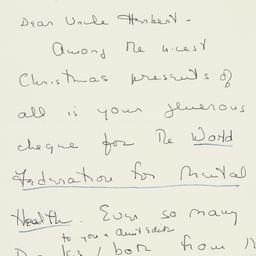 Dear Uncle Herbert -
Among the nicest
Christmas presents of
all is your generous
cheque for the World
Federation for Mental
Health. Ever so many
to you & Aunt Edith
both from